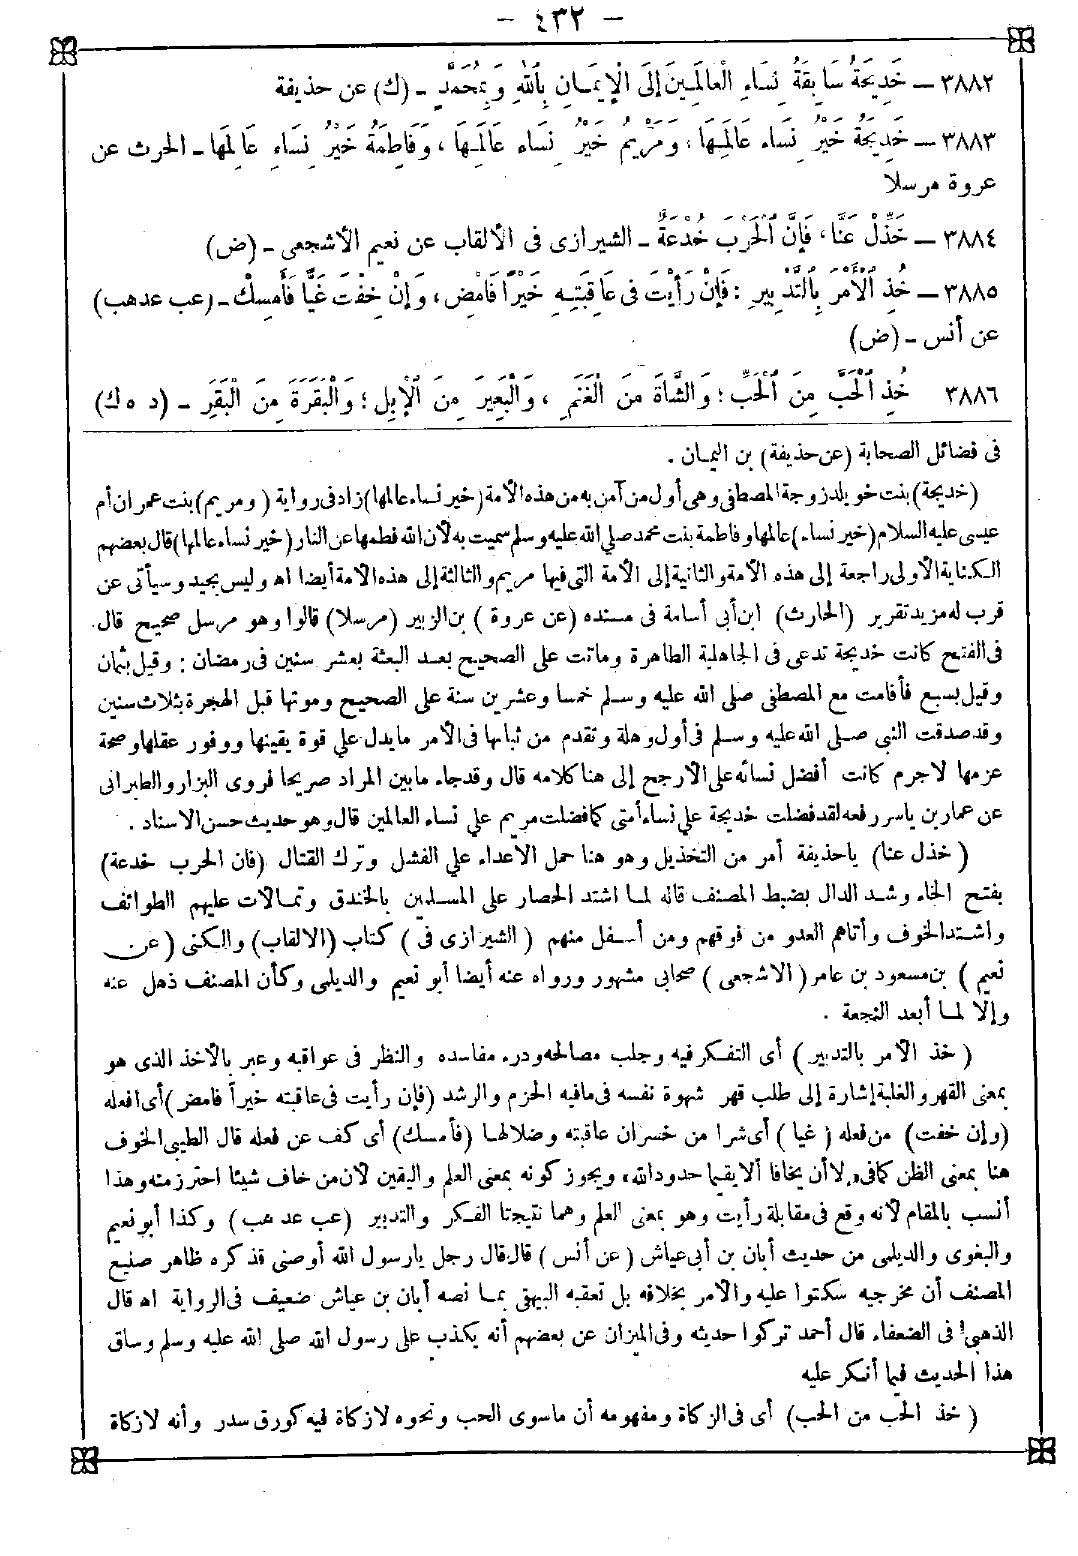 - ٤٣٢ -
٣٨٨٢ — خَدِيجَةُ سَابِقَةُ نِسَاءِ الْعَالَمِينَ إِلَى الْإِيمَـانِ بِاللهِ وَبِمُحَمَّدٍ - (ك) عن حذيفة
٣٨٨٣ — خَدِيجَةُ خَيْرُ نِسَاءِ عَالَمِـهَا، وَمَرْيَمُ خَيْرُ نِسَاءِ عَالَمِـهَا، وَفَاطِمَةُ خَيْرُ نِسَاءِ عَالَمِهَا - الحرث عن
عروة مرسلا
٣٨٨٤ — خَذِّلْ عَنَّا، فَإِنَّ الْحَرْبَ خُدْعَةٌ - الشيرازى فى الألقاب عن نعيم الأشجعى - (ض)
٣٨٨٥ — خُذِ الْأَمْرَ بِالتَّدْبِيرِ : فَإِنْ رَأَيْتَ فِى عَاقِبَتِـهِ خَيْرًا فَامْضِ، وَإِنْ خِفْتَ غَيًّا فَأَمْسِكْ - (عب عد هب)
عن أنس - (ض)
٣٨٨٦ خُذِ الْحَبَّ مِنَ الْحَبِّ؛ وَالشَّاةَ مِنَ الْغَنَمِ، وَالْبَعِيرَ مِنَ الْإِبِلِ؛ وَالْبَقَرَةَ مِنَ الْبَقَرِ - (د ه ك)
فى فضائل الصحابة (عن حذيفة) بن اليمـان .
(خديجة) بنت خويلد زوجة المصطفى وهى أول من آمن به من هذه الأمة (خير نساء عالمها) زاد فى رواية (ومريم) بنت عمران أم
عيسى عليه السلام (خير نساء) عالمها وفاطمة بنت محمد صلى الله عليه وسلم سميت به لأن الله فطمها عن النار (خير نساء عالمها) قال بعضهم
الكناية الأولى راجعة إلى هذه الأمة والثانية إلى الأمة التى فيها مريم والثالثة إلى هذه الأمة أيضا اه وليس بجيد وسيأتى عن
قرب له مزيد تقرير (الحارث) ابن أبى أسامة فى مسنده (عن عروة) بن الزبير (مرسلا) قالوا وهو مرسل صحيح قال
فى الفتح كانت خديجة تدعى فى الجاهلية الطاهرة وماتت على الصحيح بعـد البعثة بعشر سنين فى رمضان : وقيل بثمان
وقيل بسبع فأقامت مع المصطفى صلى الله عليه وسـلم خمسا وعشرين سنة على الصحيح وموتها قبل الهجرة بثلاث سنين
وقد صدقت النبى صـلى الله عليه وسـلم فى أول وهلة وتقدم من ثباتها فى الأمر ما يدل على قوة يقينها ووفور عقلها وصحة
عزمها لا جرم كانت أفضل نسائه على الارجح إلى هنا كلامه قال وقد جاء ما بين المراد صريحا فروى البزار والطبرانى
عن عمار بن ياسر رفعه لقد فضلت خديجة على نساء أمتى كما فضلت مريم على نساء العالمين قال وهو حديث حسن الاسناد .
(خذل عنا) يا حذيفة أمر من التخذيل وهو هنا حمل الاعداء على الفشل وترك القتال (فان الحرب خدعة)
بفتح الخاء وشـد الدال بضبط المصنف قاله لمـا اشتد الحصار على المسـلمين بالخندق وتمـالات عليهم الطوائف
واشـتد الخوف وأتاهم العدو من فوقهم ومن أسـفل منهم (الشيرازى فى) كتاب (الالقاب) والكنى (عن
نعيم) بن مسعود بن عامر (الاشجعى) صحابى مشهور ورواه عنه أيضا أبو نعيم والديلمى وكأن المصنف ذهل عنه
وإلا لمـا أبعد النجعة .
(خذ الأمر بالتدبير) أى التفكر فيه وجلب مصالحه ودرء مفاسده والنظر فى عواقبه وعبر بالأخذ الذى هو
بمعنى القهر والغلبة إشارة إلى طلب قهر شهوة نفسه فى ما فيه الحزم والرشد (فإن رأيت فى عاقبته خيراً فامض) أى افعله
(وإن خفت) من فعله (غيا) أى شرا من خسران عاقبته وضلالهـا (فأمسك) أى كف عن فعله قال الطيبى الخوف
هنا بمعنى الظن كما فى «إلا أن يخافا ألا يقيما حدود الله» ويجوز كونه بمعنى العلم واليقين لأن من خاف شيئا احترز منه وهذا
أنسب بالمقام لأنه وقع فى مقابلة رأيت وهو بمعنى العلم وهما نتيجتا الفـكر والتدبير (عب عد هب) وكذا أبو نعيم
والبغوى والديلمى من حديث أبان بن أبى عياش (عن أنس) قال قال رجل يا رسول الله أوصنى فذكره ظاهر صنيع
المصنف أن مخرجيه سكتوا عليه والأمر بخلافه بل تعقبه البيهقى بمـا نصه أبان بن عياش ضعيف فى الرواية اه قال
الذهبى فى الضعفاء قال أحمد تركوا حديثه وفى الميزان عن بعضهم أنه يكذب على رسول الله صلى الله عليه وسلم وساق
هذا الحديث فيما أنكر عليه
(خذ الحب من الحب) أى فى الزكاة ومفهومه أن ما سوى الحب ونحوه لا زكاة فيه كورق سدر وأنه لا زكاة